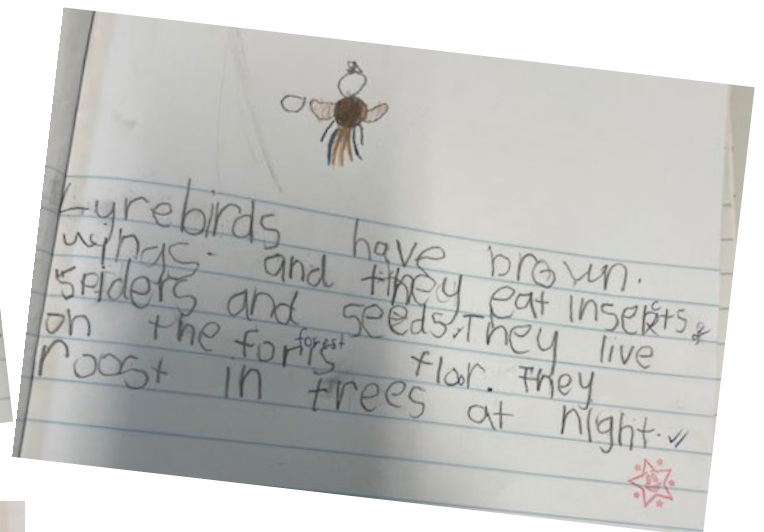 Lyrebirds have brown.
wings. and they eat insekts,
spiders and seeds. They live
on the foris forest flor. They
roost in trees at night.